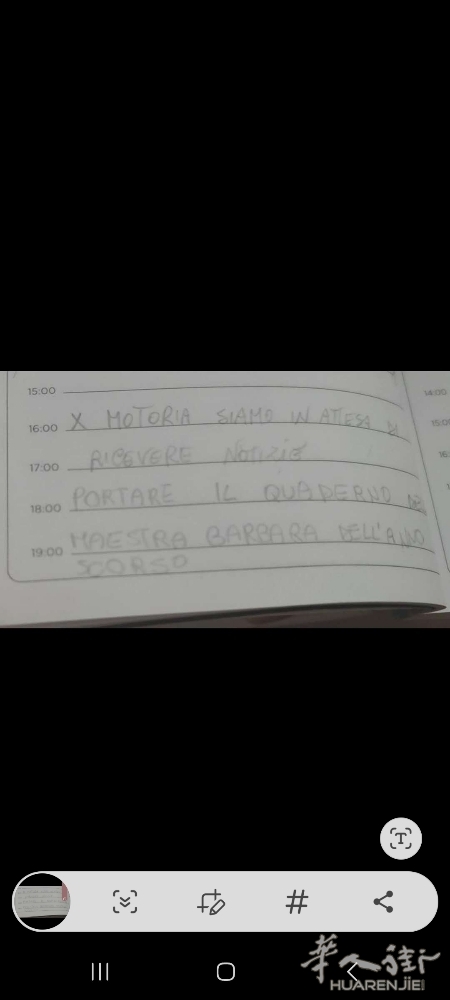 15:00
14:00
16:00 X MOTORIA SIAMO IN ATTESA DI
15:0
17:00 RICEVERE NOTIZIE
16:
18:00 PORTARE IL QUADERNO
19:00 MAESTRA BARBARA DELL'ANNO
SCORSO
T
#
華人街
HUARENJIE